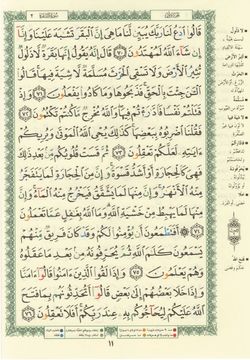 سورة البقرة ٢
قَالُوا ادْعُ لَنَا رَبَّكَ يُبَيِّن لَّنَا مَا هِيَ إِنَّ الْبَقَرَ تَشَابَهَ عَلَيْنَا وَإِنَّا
إِن شَاءَ اللَّهُ لَمُهْتَدُونَ ٧٠ قَالَ إِنَّهُ يَقُولُ إِنَّهَا بَقَرَةٌ لَّا ذَلُولٌ
تُثِيرُ الْأَرْضَ وَلَا تَسْقِي الْحَرْثَ مُسَلَّمَةٌ لَّا شِيَةَ فِيهَا قَالُوا
الْآنَ جِئْتَ بِالْحَقِّ فَذَبَحُوهَا وَمَا كَادُوا يَفْعَلُونَ ٧١ وَإِذْ
قَتَلْتُمْ نَفْسًا فَادَّارَأْتُمْ فِيهَا وَاللَّهُ مُخْرِجٌ مَّا كُنتُمْ تَكْتُمُونَ ٧٢
فَقُلْنَا اضْرِبُوهُ بِبَعْضِهَا كَذَٰلِكَ يُحْيِي اللَّهُ الْمَوْتَىٰ وَيُرِيكُمْ
آيَاتِهِ لَعَلَّكُمْ تَعْقِلُونَ ٧٣ ثُمَّ قَسَتْ قُلُوبُكُم مِّن بَعْدِ ذَٰلِكَ
فَهِيَ كَالْحِجَارَةِ أَوْ أَشَدُّ قَسْوَةً وَإِنَّ مِنَ الْحِجَارَةِ لَمَا يَتَفَجَّرُ
مِنْهُ الْأَنْهَارُ وَإِنَّ مِنْهَا لَمَا يَشَّقَّقُ فَيَخْرُجُ مِنْهُ الْمَاءُ وَإِنَّ
مِنْهَا لَمَا يَهْبِطُ مِنْ خَشْيَةِ اللَّهِ وَمَا اللَّهُ بِغَافِلٍ عَمَّا تَعْمَلُونَ
٧٤ أَفَتَطْمَعُونَ أَن يُؤْمِنُوا لَكُمْ وَقَدْ كَانَ فَرِيقٌ مِّنْهُمْ
يَسْمَعُونَ كَلَامَ اللَّهِ ثُمَّ يُحَرِّفُونَهُ مِن بَعْدِ مَا عَقَلُوهُ
وَهُمْ يَعْلَمُونَ ٧٥ وَإِذَا لَقُوا الَّذِينَ آمَنُوا قَالُوا آمَنَّا
وَإِذَا خَلَا بَعْضُهُمْ إِلَىٰ بَعْضٍ قَالُوا أَتُحَدِّثُونَهُم بِمَا فَتَحَ
اللَّهُ عَلَيْكُمْ لِيُحَاجُّوكُم بِهِ عِندَ رَبِّكُمْ أَفَلَا تَعْقِلُونَ ٧٦
١١